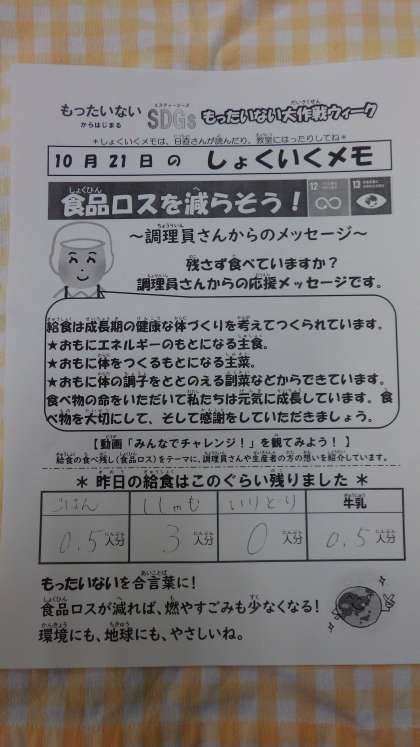 もったいない
からはじまる
エスディージーズ
SDGs
もったいない大作戦ウィーク
＊しょくいくメモは、日直さんが読んだり、教室にはったりしてね＊
10月21日の しょくいくメモ
食品ロスを減らそう！
12
13
～調理員さんからのメッセージ～
残さず食べていますか？
調理員さんからの応援メッセージです。
給食は成長期の健康な体づくりを考えてつくられています。
★おもにエネルギーのもとになる主食。
★おもに体をつくるもとになる主菜。
★おもに体の調子をととのえる副菜などからできています。
食べ物の命をいただいて私たちは元気に成長しています。食
べ物を大切にして、そして感謝をしていただきましょう。
【動画「みんなでチャレンジ！」を観てみよう！】
給食の食べ残し(食品ロス)をテーマに、調理員さんや生産者の方の想いを紹介しています。
＊ 昨日の給食はこのぐらい残りました ＊
ごはん ししゃも いりとり 牛乳
0.5人分 3人分 0人分 0.5人分
もったいないを合言葉に！
食品ロスが減れば、燃やすごみも少なくなる！
環境にも、地球にも、やさしいね。